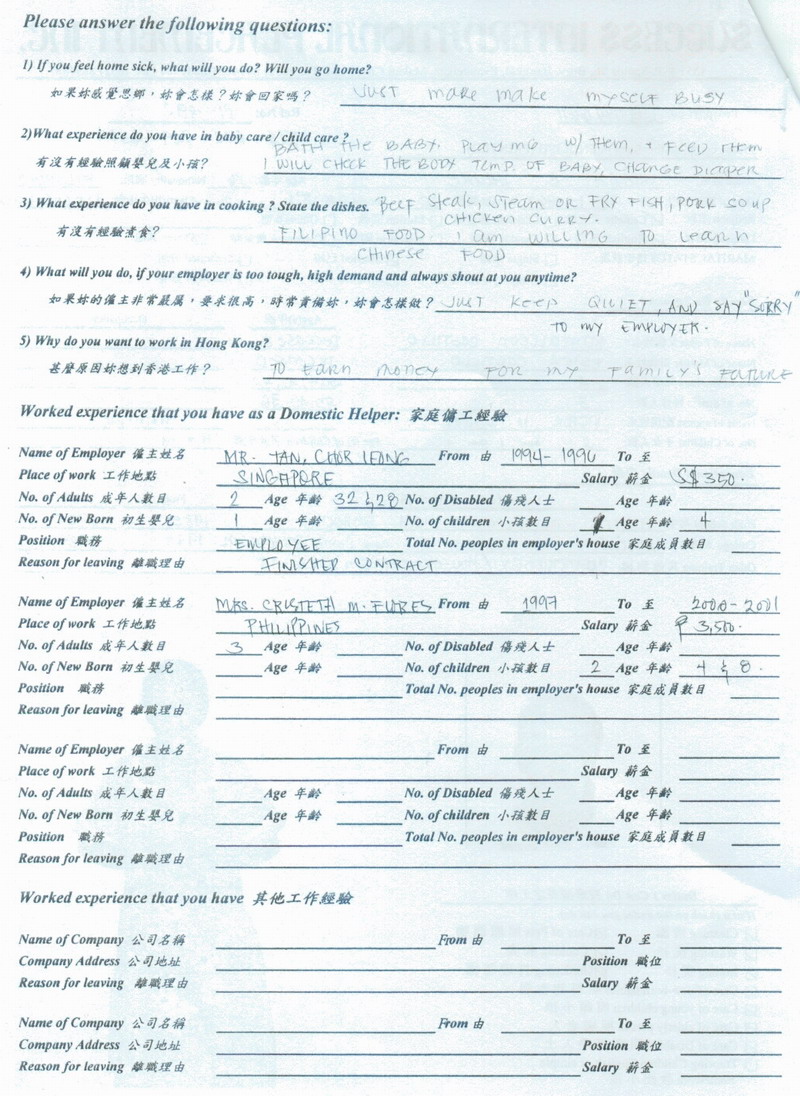 Please answer the following questions:
1) If you feel home sick, what will you do? Will you go home?
如果妳感覺思鄉，妳會怎樣？妳會回家嗎？ JUST make make MYSELF BUSY
2)What experience do you have in baby care / child care ?
BATH THE BABY. PLAYING W/ THEM, + FEED THEM
有沒有經驗照顧嬰兒及小孩? I WILL CHECK THE BODY TEMP. OF BABY, CHANGE DIAPER
3) What experience do you have in cooking ? State the dishes. BEEF Steak, Steam OR FRY FISH, PORK SOUP
CHICKEN CURRY.
有沒有經驗煮食? FILIPINO FOOD. I am WILLING TO Learn
Chinese FOOD
4) What will you do, if your employer is too tough, high demand and always shout at you anytime?
如果妳的僱主非常嚴厲，要求很高，時常責備妳，妳會怎樣做？ JUST KEEP QUIET, AND SAY "SORRY"
TO MY EMPLOYER.
5) Why do you want to work in Hong Kong?
甚麼原因妳想到香港工作？ TO EARN MONEY FOR MY FAMILY'S FUTURE
Worked experience that you have as a Domestic Helper: 家庭傭工經驗
Name of Employer 僱主姓名 MR. TAN, CHOR From 由 1994-1996 To 至
Place of work 工作地點 SINGAPORE Salary 薪金 S$350.
No. of Adults 成年人數目 2 Age 年齡 32 & 28 No. of Disabled 傷殘人士 Age 年齡
No. of New Born 初生嬰兒 1 No. of children 小孩數目 1 Age 年齡 4
Position 職務 EMPLOYEE Total No. peoples in employer's house 家庭成員數目
Reason for leaving 離職理由 FINISHED CONTRACT
Name of Employer 僱主姓名 MRS. M. FLORES From 由 1997 To 至 2000-2001
Place of work 工作地點 PHILIPPINES Salary 薪金 ₱3,500.
No. of Adults 成年人數目 3 Age 年齡 No. of Disabled 傷殘人士 Age 年齡
No. of New Born 初生嬰兒 Age 年齡 No. of children 小孩數目 2 Age 年齡 4 & 8.
Position 職務 Total No. peoples in employer's house 家庭成員數目
Reason for leaving 離職理由
Name of Employer 僱主姓名 From 由 To 至
Place of work 工作地點 Salary 薪金
No. of Adults 成年人數目 Age 年齡 No. of Disabled 傷殘人士 Age 年齡
No. of New Born 初生嬰兒 Age 年齡 No. of children 小孩數目 Age 年齡
Position 職務 Total No. peoples in employer's house 家庭成員數目
Reason for leaving 離職理由
Worked experience that you have 其他工作經驗
Name of Company 公司名稱 From 由 To 至
Company Address 公司地址 Position 職位
Reason for leaving 離職理由 Salary 薪金
Name of Company 公司名稱 From 由 To 至
Company Address 公司地址 Position 職位
Reason for leaving 離職理由 Salary 薪金